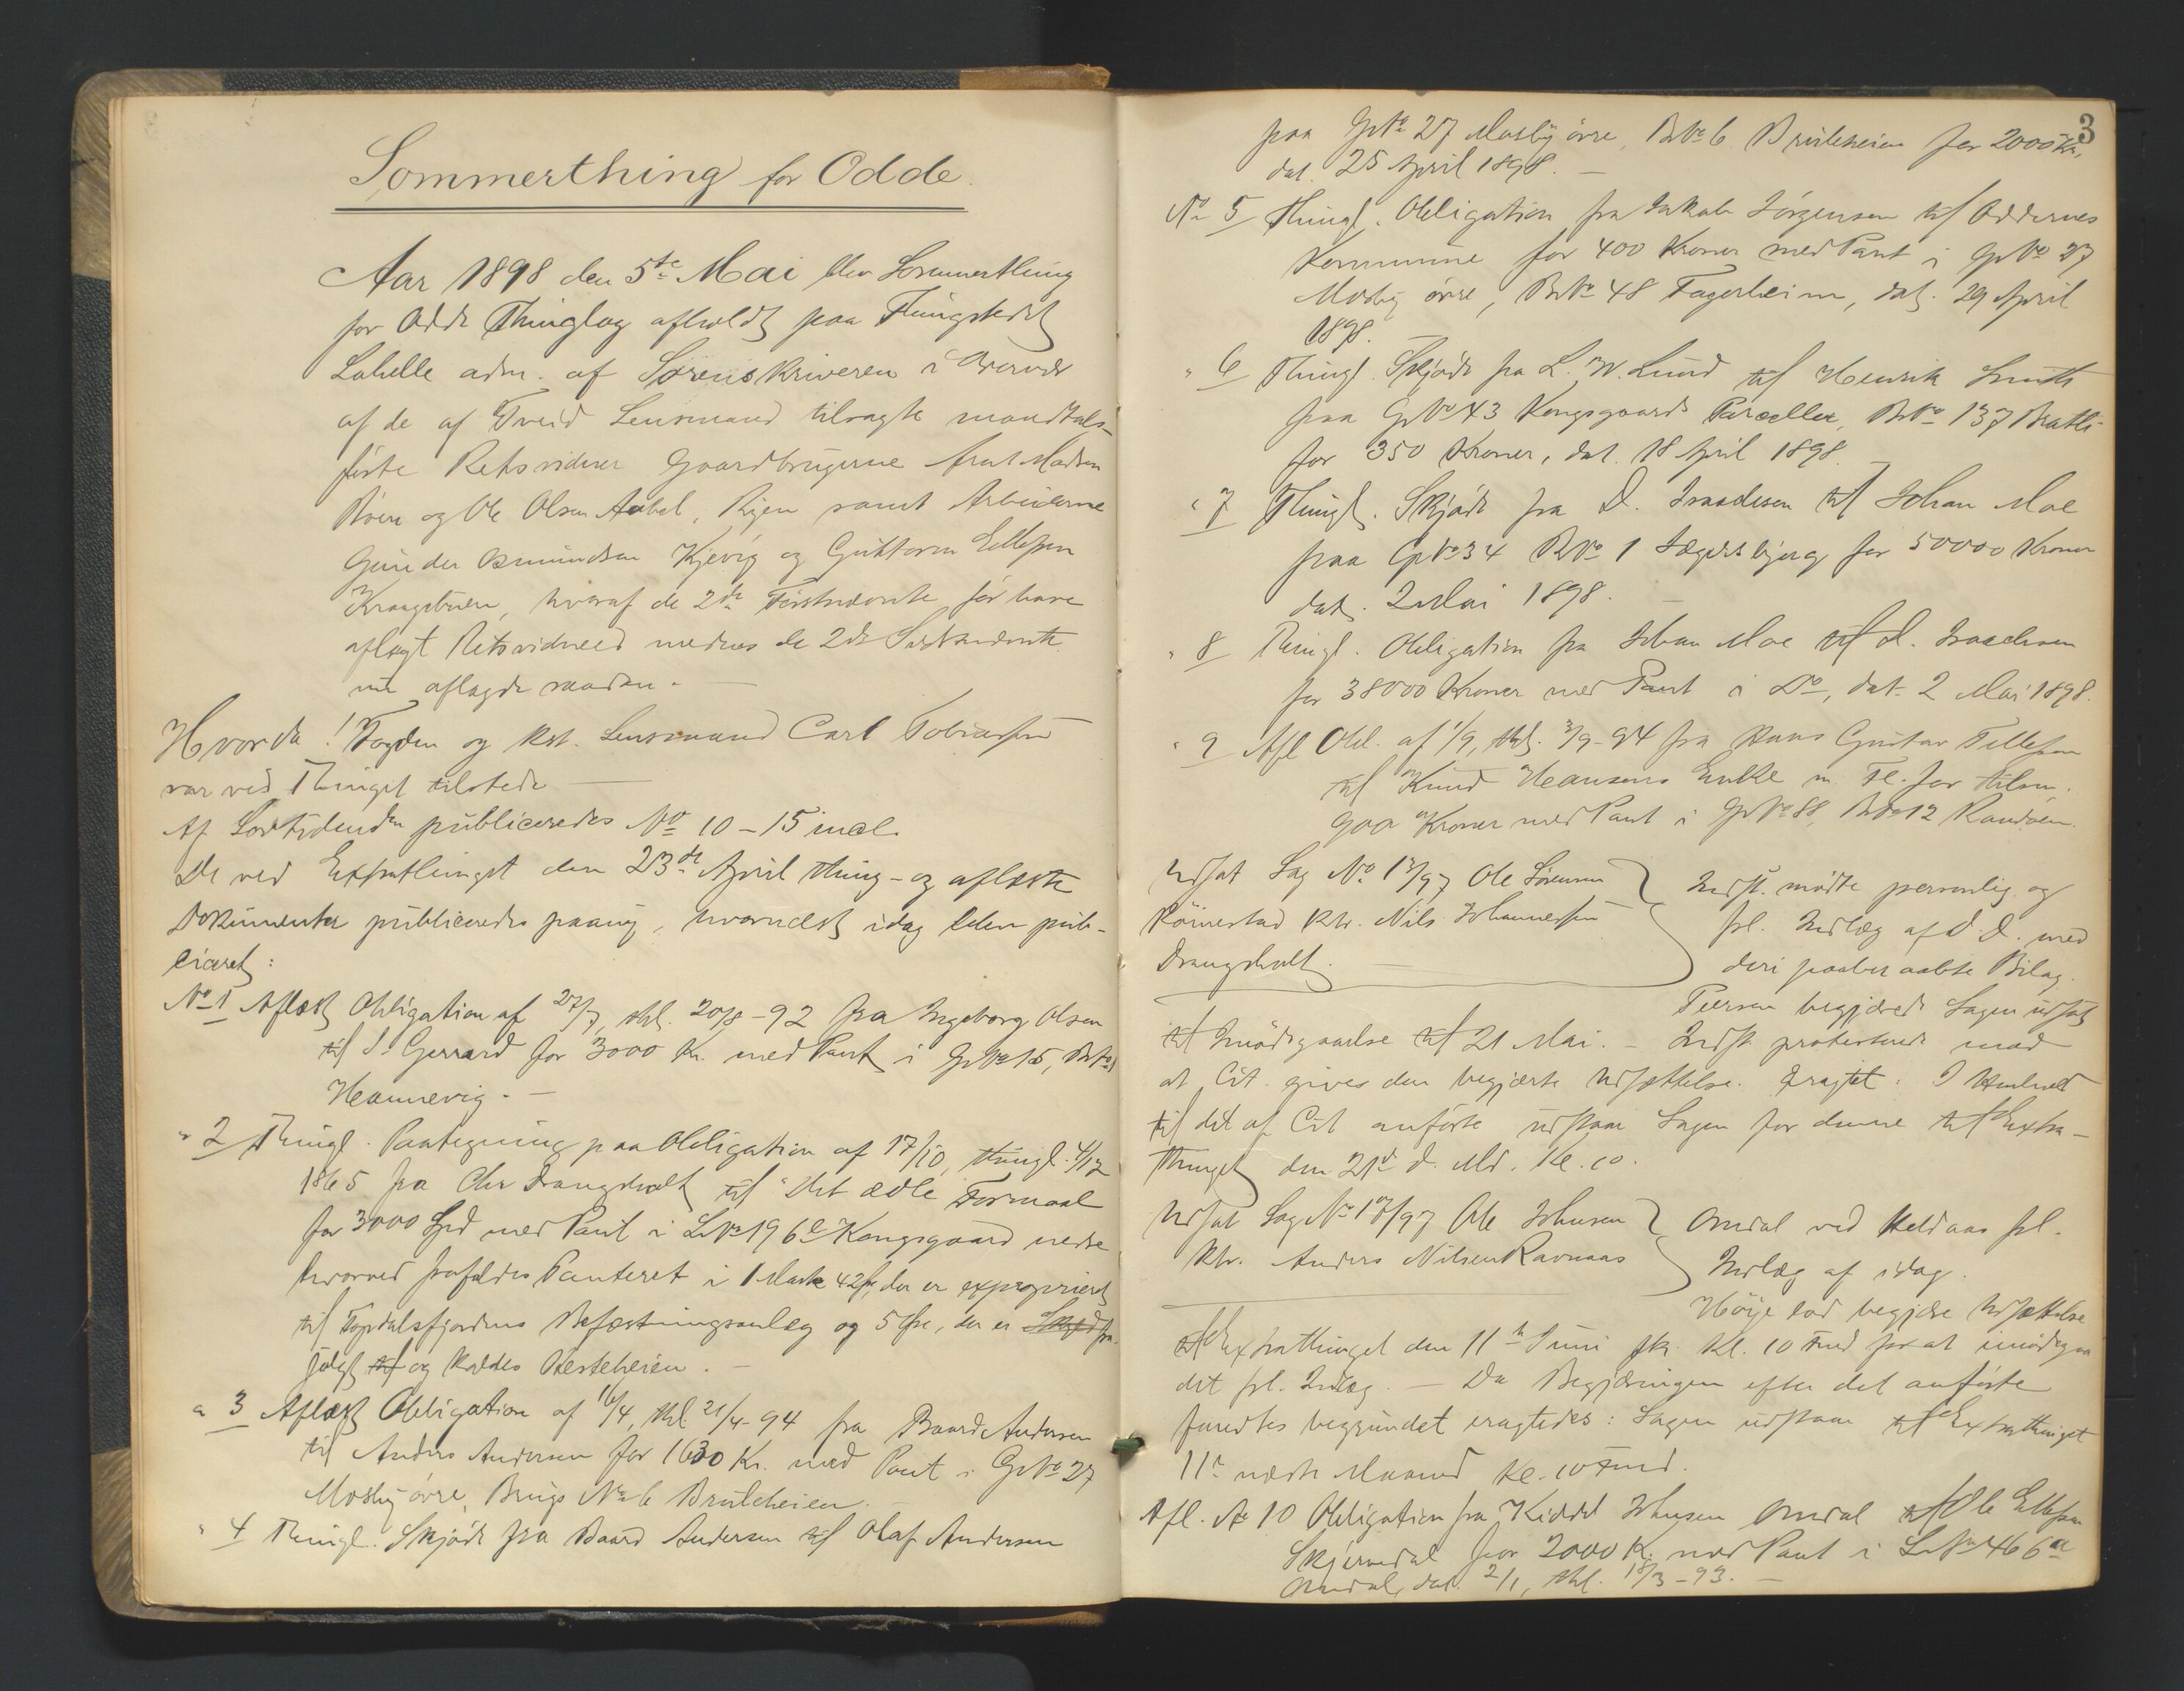 Sommerthing for Odde.
Aar 1898 den 5te Mai blev Sommerthing
for Odde Thinglag afholdt paa Thingstedet
Lahelle adm. af Sorenskriveren i Overvær
af de af Tveid Lensmand tilsagte mandtals-
førte Retsvidner Gaardbrugerne Madsen
og Ole Olsen Aabel, Ryen samt Arbeiderne
Gunder Osmundsen Kjevig og Guttorm Ellefsen
Kraagebuen, hvoraf de 2de Førstnævnte før have
aflagt Retsvidneed medens de 2de Sidstnævnte
nu aflagde saadan. —
Hvorda! Fogden og kst. Lensmand Carl Tobiassen
var ved Thinget tilstede —
Af Lovtidenden publiceredes No 10 - 15 incl.
De ved Extrathinget den 23de April thing- og aflæste
Dokumenter publiceredes paany, hvorneest idag blev pub-
liceret:
No 1 Aflæst Obligation af 27/7, thl. 20/8 - 92 fra Ingeborg Olsen
til S. Gerrard for 3000 Kr. med Pant i GrNo 15, BrNo 1
Hamrevig. —
" 2 Thingl. Paategning paa Obligation af 17/10, thingl. 4/12
1865 fra Chr Drangsholt til "Det ædle Formaal
for 3000 Spd med Pant i LNo 196 e Kongsgaard nedre
hvorved frafaldes Panteret i 1 Mark 42 Øre, der er exproprieret
til Topdalsfjordens Befæstningsanlæg og 5 Øre, der er Skyld fra-
solgt til og kaldes Hesteheien. —
" 3 Aflæst Obligation af 16/4, thl. 21/4 - 94 fra Baard Andersen
til Anders Andersen for 1630 Kr. med Pant i GrNo 27
Mosby øvre, Brugs No 6 Bruleheien. —
" 4 Thingl. Skjøde fra Baard Andersen til Olaf Andersen
3
paa GrNo 27 Mosby øvre, BrNo 6 Bruleheien for 2000 Kr.,
dat. 25 April 1898. —
No 5 Thingl. Obligation fra Jakob Jørgensen til Oddernes
Kommune for 400 Kroner med Pant i GrNo 27
Mosby øvre, BrNo 48 Fagerheim, dat. 29 April
1898.
" 6 Thingl. Skjøde fra L. W. Lund til Henrik Smith
paa GrNo 43 Kongsgaards Parceller, BrNo 137 Bratli
for 350 Kroner, dat. 18 April 1898. —
" 7 Thingl. Skjøde fra D. Isaachsen til Johan Moe
paa GrNo 34 BrNo 1 Jægersbjerg for 50000 Kroner
dat. 2 Mai 1898. —
" 8 Thingl. Obligation fra Johan Moe til D. Isaachsen
for 38000 Kroner med Pant i Do, dat. 2 Mai 1898.
" 9 Afl Obl. af 1/9, thl. 3/9 - 94 fra Hans Gustav Tellefsen
til Knud Hansens Enke m. Fl. for tilsm.
900 Kroner med Pant i GrNo 88, BrNo 12 Randøen.
Udsat Sag No 13/97 Ole Sørensen
Røinestad ktr. Nils Johannessen
Drangsholt. —
Indst. mødte personlig og
frl. Indlæg af d. D. med
deri paaberaabte Bilag.
Tiersen begjærede Sagen udsat
til Imødegaaelse til 21 Mai. - Indst. protesterede mod
at Cit. gives den begjærte Udsættelse. Eragtet: I Henhold
til det af Cit anførte udstaar Sagen for denne til Extra-
thinget den 21de d. Md. Kl. 10.
Udsat Sag No 17/97 Ole Johnsen
ktr. Anders Nilsen Ravnaas
Omdal ved Heldaas frl.
Indlæg af idag.
Høije lod begjære Udsættelse
til Extrathinget den 11te Juni fk. Kl. 10 Fmd for at imødegaa
det frl. Indlæg. — Da Begjæringen efter det anførte
fandtes begrundet eragtedes: Sagen udstaar til Extrathinget
11te næste Maaned Kl. 10 Fmd.
Afl. No 10 Obligation fra Kiddel Johnsen Omdal til Ole Ellefsen
Skjervedal for 2000 Kr. med Pant i LNo 466 a
Omdal, dat. 2/1, thl. 18/3 - 93. —